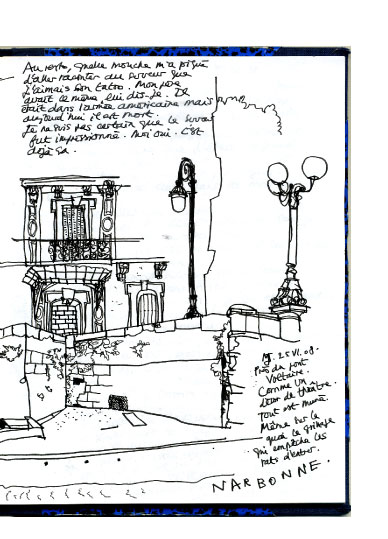 Au resto, quelle mouche m'a piqué
d'aller raconter au serveur que
j'aimais son tatoo. Mon père
avait le même, lui dis-je. Il
était dans l'armée américaine mais
aujourd'hui il est mort.
Je ne suis pas certain que le serveur
fut impressionné. Moi oui. C'est
déjà ça.
25 VI. 09.
Près du pont
Voltaire.
Comme un
décor de théâtre.
Tout est muré.
Même sur le
quai le grillage
qui empêche les
rats d'entrer.
NARBONNE.